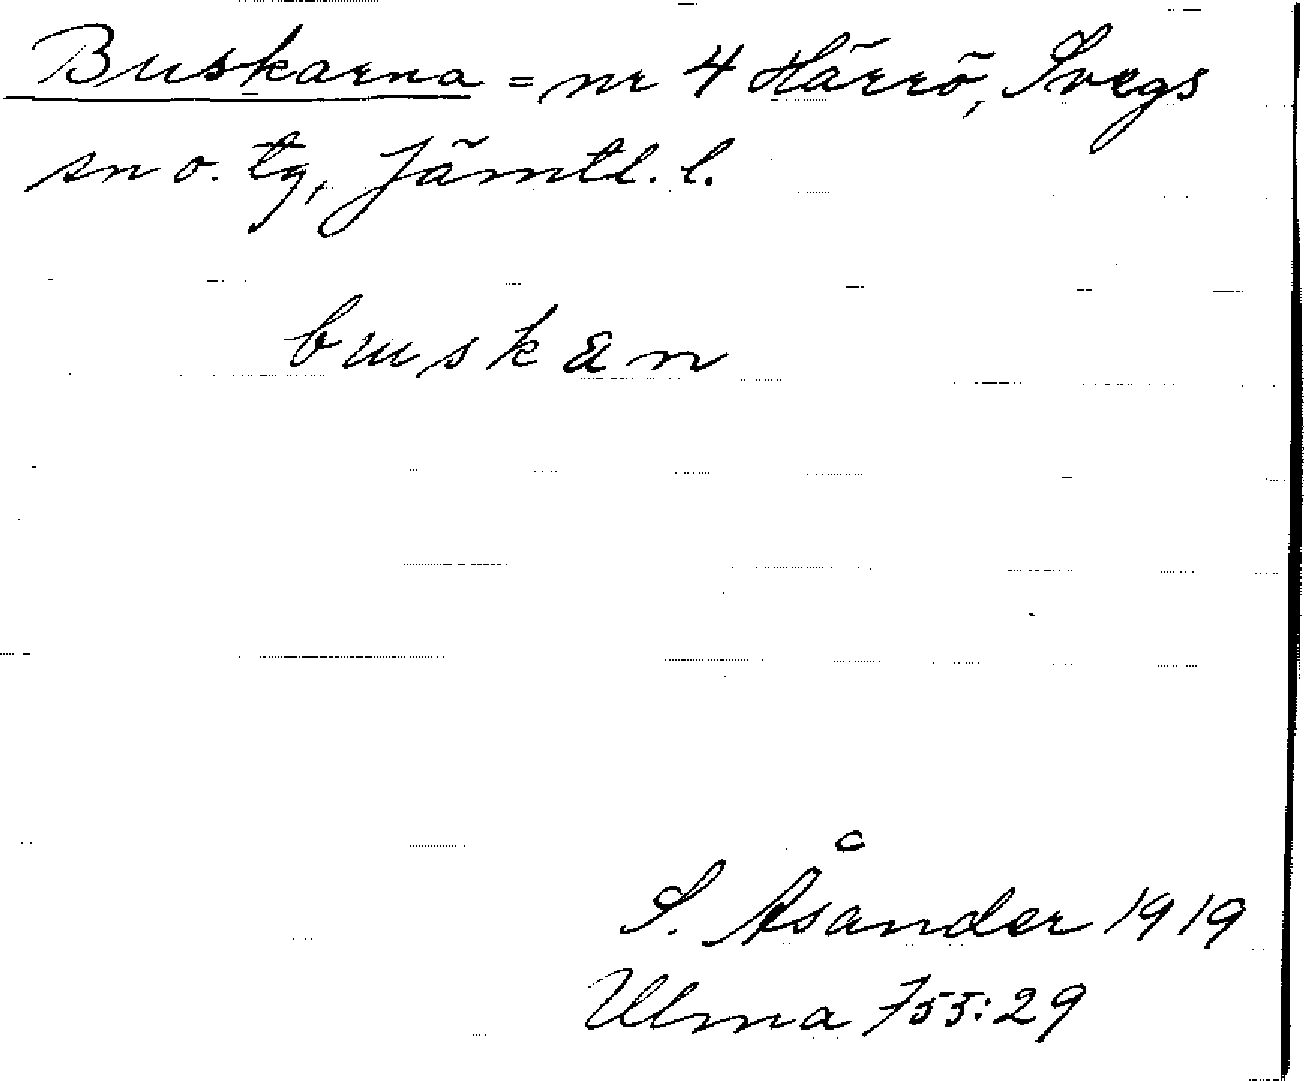 Buskarna = nr 4 Härrö, Svegs
sn o. tg, Jämtl. l.
buskan
S. Åsander 1919
Ulma 755:29